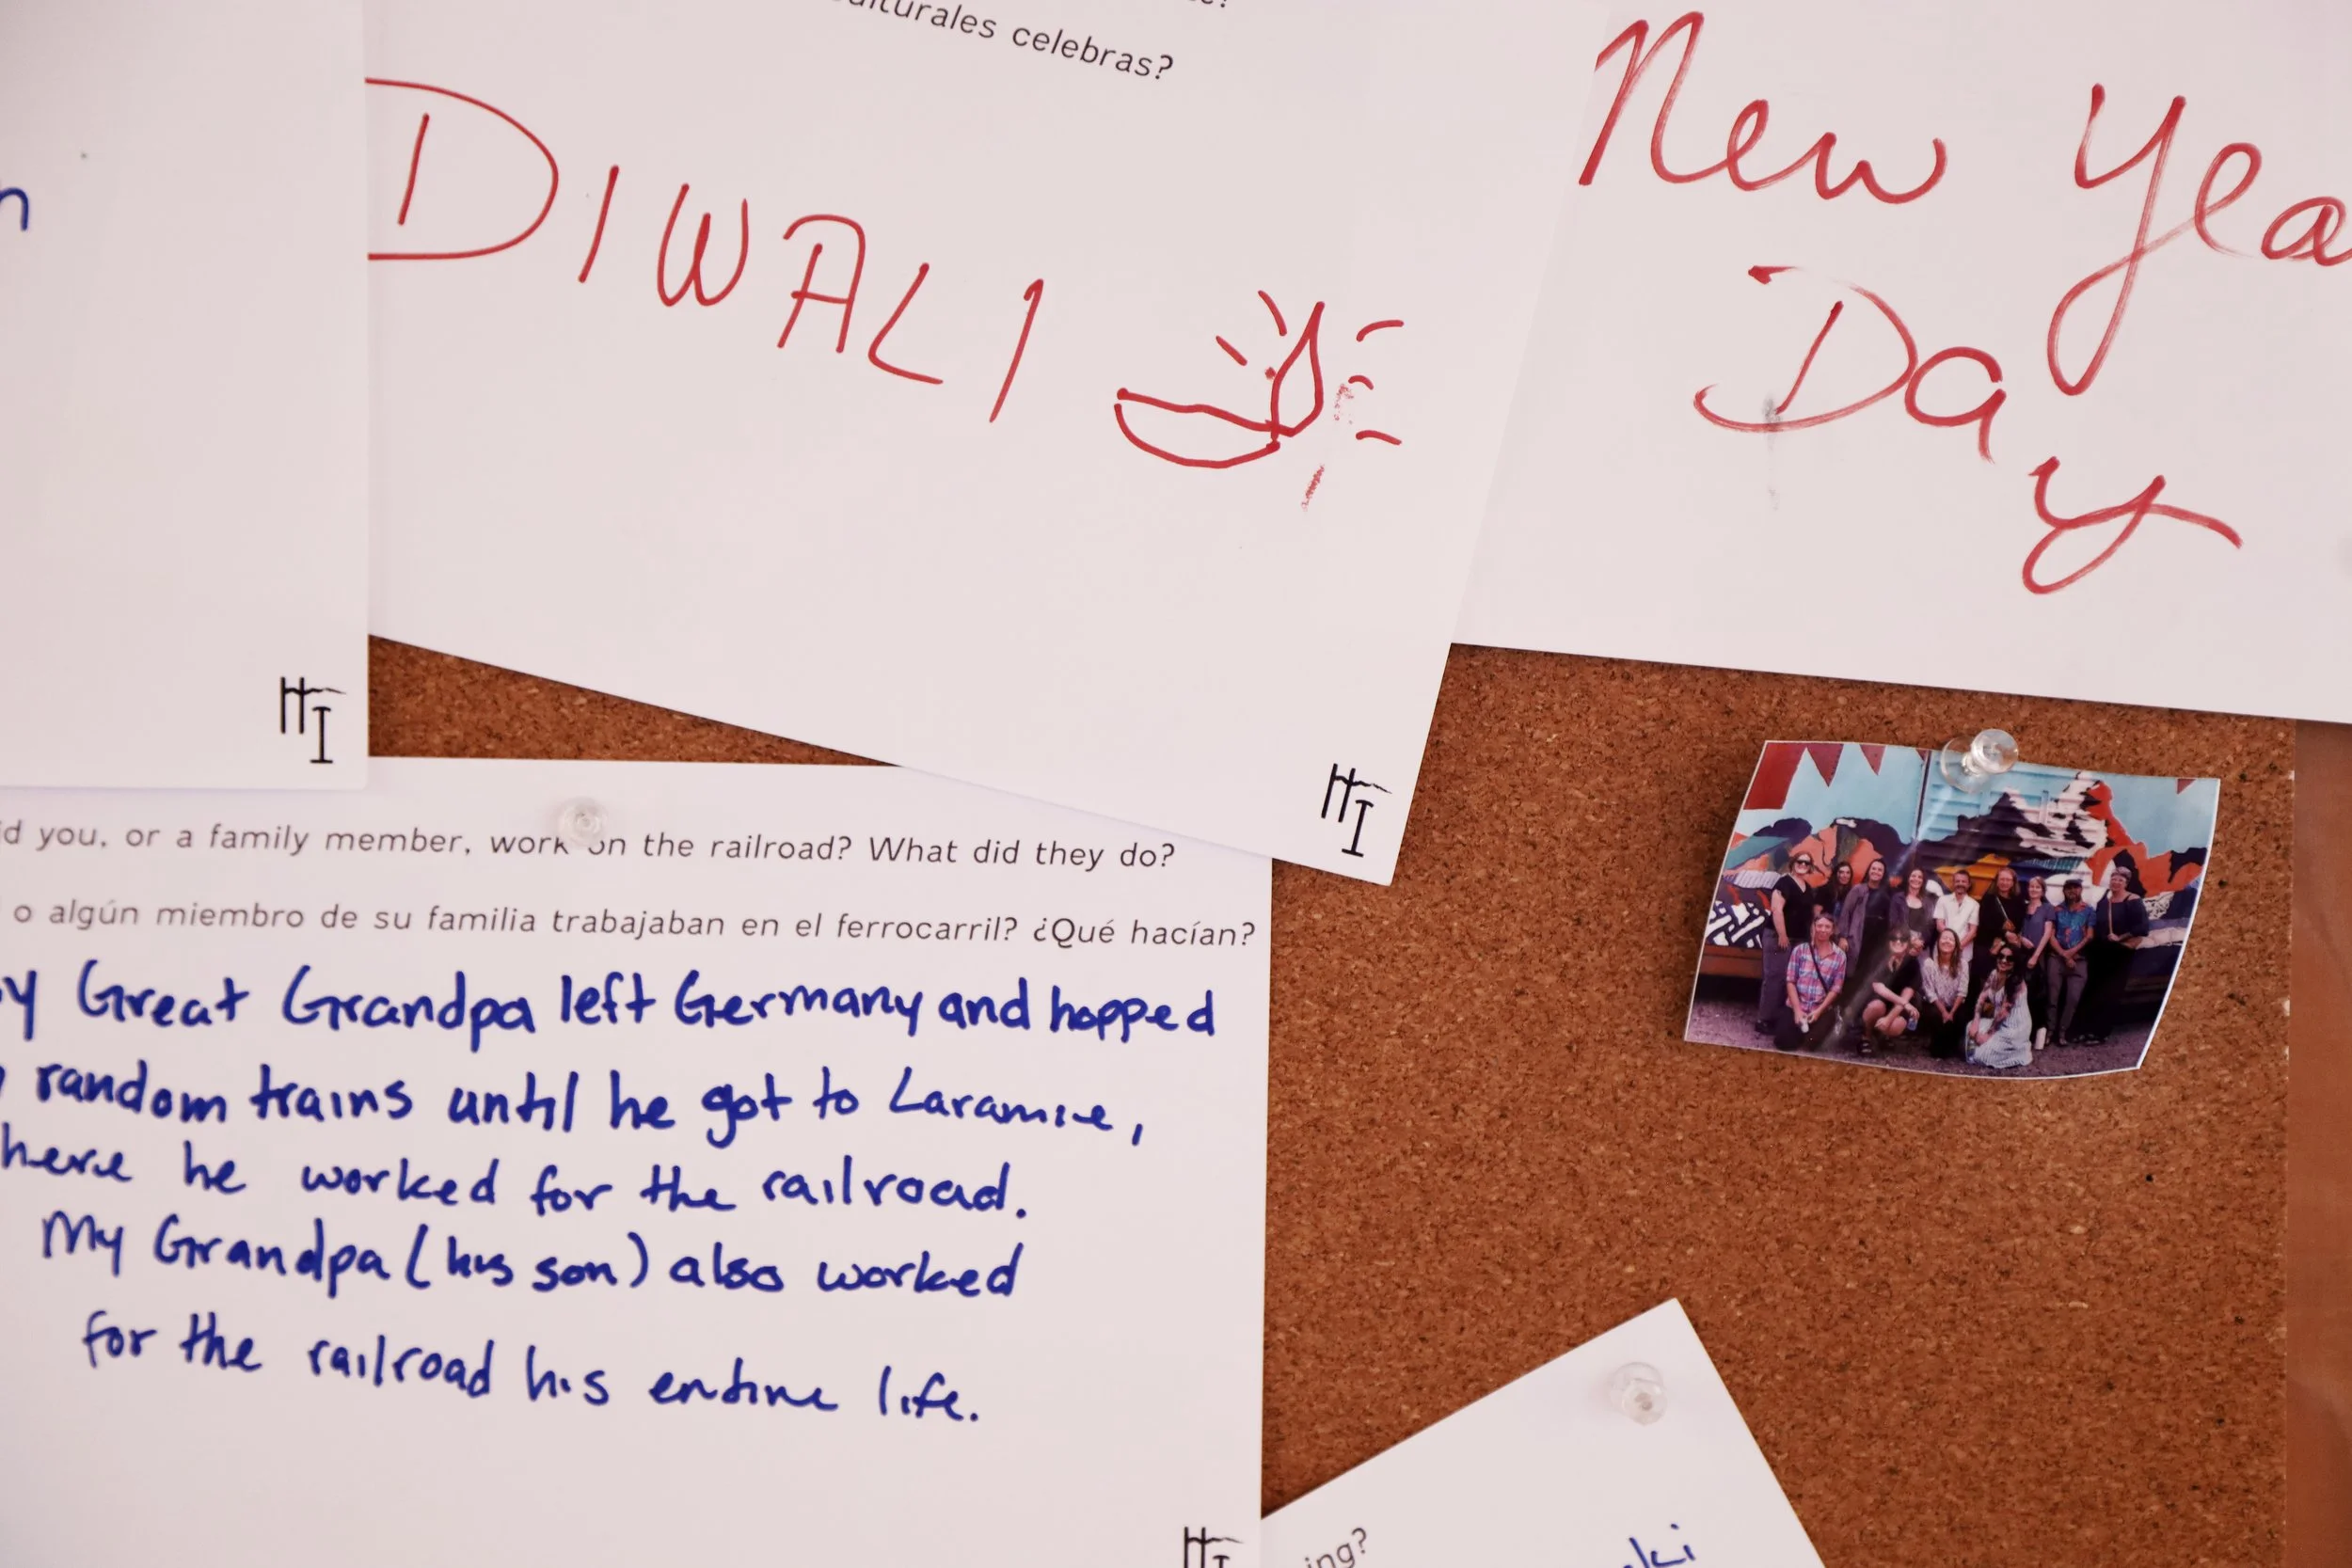 culturales celebras?
DIWALI
New Yea
Day
n
HI
HI
d you, or a family member, work on the railroad? What did they do?
o algún miembro de su familia trabajaban en el ferrocarril? ¿Qué hacían?
y Great Grandpa left Germany and hopped
random trains until he got to Laramie,
here he worked for the railroad.
My Grandpa (his son) also worked
for the railroad his entire life.
HI
ing?
ki